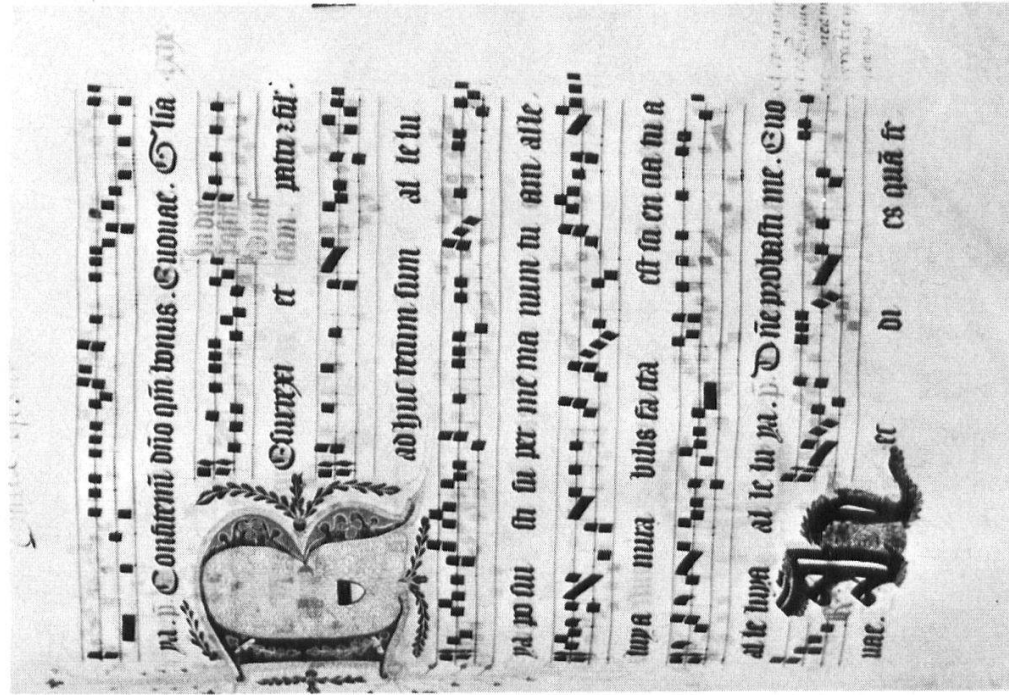 ya. p. Confitemĩ dño qm̃ bonus. Euouae. Gl̃ia
Resurrexi et patri ⁊ fil̃.
adhuc tecum sum al le lu
ya po sui sti su per me ma num tu am alle
luya mira bilis fa cta est sci en cia tu a
al le luya al le lu ya. p. Dñe probasti me. Euo
uae. Hec di es quã fe